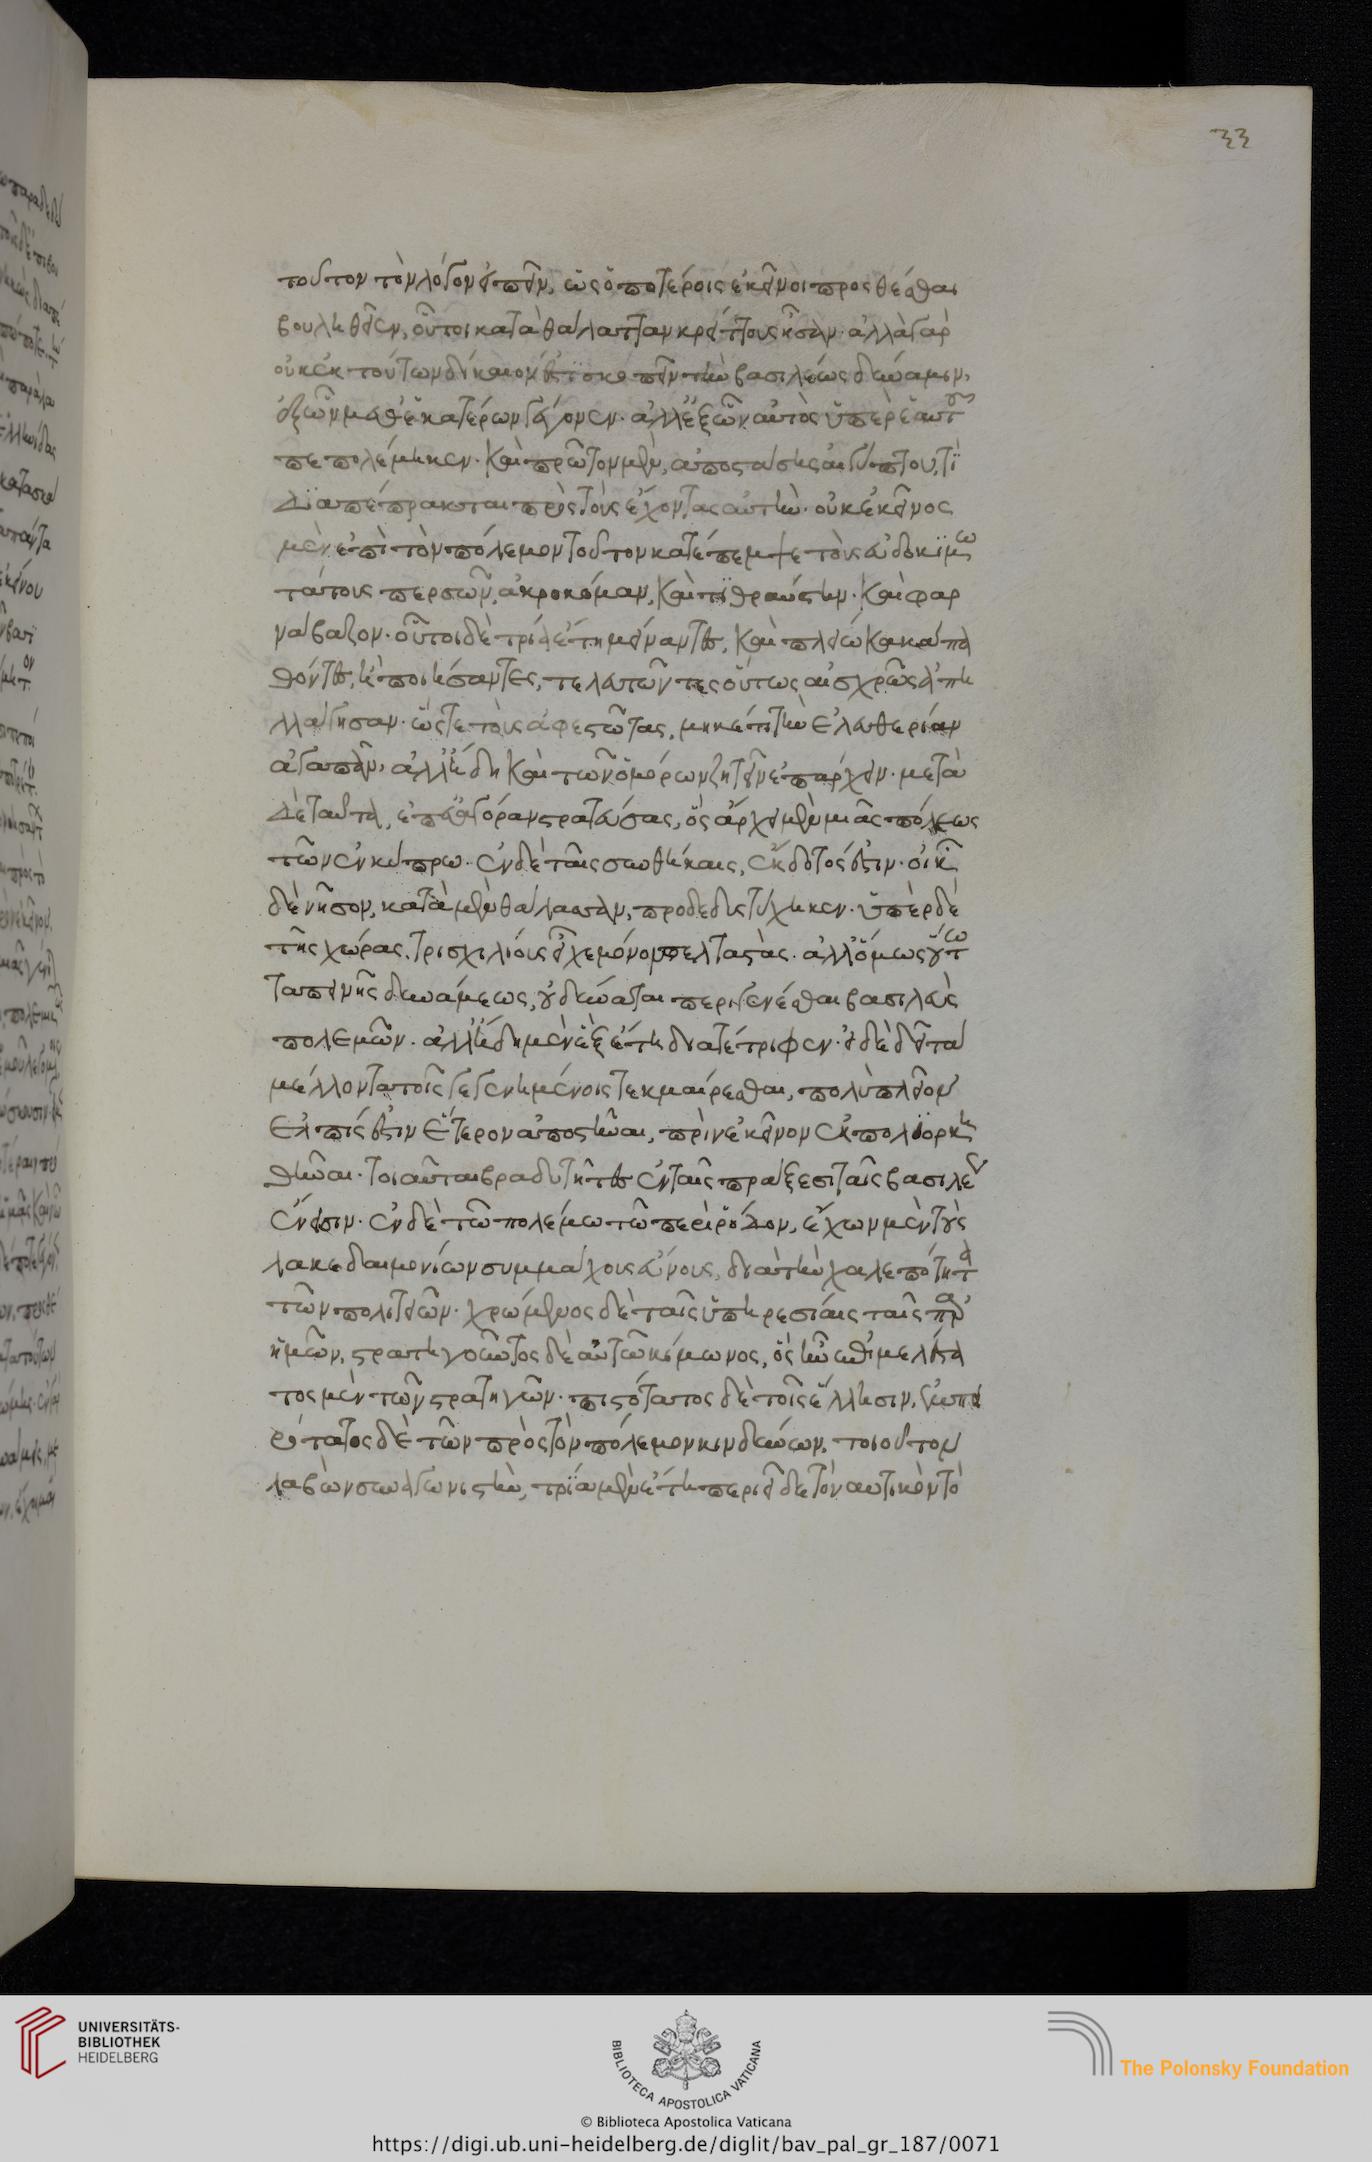 33
τοῦτον τὸν λόγον εἰπεῖν, ὡς ὁποτέροις ἐκεῖνοι προσθέσθαι
βουληθεῖεν, οὗτοι κατὰ θάλατταν κρείττους ἦσαν· ἀλλὰ γὰρ
οὐκ ἐκ τούτων δίκαιόν ἐστι σκοπεῖν τὴν βασιλέως δύναμιν,
ἐξ ὧν μεθ' ἑκατέρων γέγονεν· ἀλλ' ἐξ ὧν αὐτὸς ὑπὲρ ἑαυτοῦ
πεπολέμηκεν· καὶ πρῶτον μὲν, ἀποστάσης αἰγύπτου, τί
διαπέπρακται πρὸς τοὺς ἔχοντας αὐτήν· οὐκ ἐκεῖνος
μὲν ἐπὶ τὸν πόλεμον τοῦτον κατέπεμψε τοὺς εὐδοκιμω
τάτους περσῶν, ἀκροκόμαν, καὶ τιθραύστην· καὶ φαρ
νάβαζον· οὗτοι δὲ τρία ἔτη μείναντες, καὶ πλείω κακὰ πα
θόντες, ἢ ποιήσαντες, τελευτῶντες οὕτως αἰσχρῶς ἀπη
λλάγησαν· ὥστε τοὺς ἀφεστῶτας, μηκέτι τὴν ἐλευθερίαν
ἀγαπᾶν, ἀλλ' ἤδη καὶ τῶν ὁμόρων ζητεῖν ἐπάρχειν· μετὰ
δὲ ταῦτα, ἐπ' εὐαγόραν στρατεύσας, ὃς ἄρχει μὲν μιᾶς πόλεως
τῶν ἐν κύπρω· ἐν δὲ ταῖς συνθήκαις, ἔκδοτός ἐστιν· οἰκῶν
δὲ νῆσον, κατὰ μὲν θάλασσαν, προδεδυστύχηκεν· ὑπὲρ δὲ
τῆς χώρας, τρισχιλίους εἶχε μόνον πελταστάς· ἀλλ' ὅμως οὕτω
ταπεινῆς δυνάμεως, οὐ δύναται περιγενέσθαι βασιλεὺς
πολεμῶν· ἀλλ' ἤδη μὲν ἓξ ἔτη διατέτριφεν· εἰ δὲ δεῖ τὰ
μέλλοντα τοῖς γεγενημένοις τεκμαίρεσθαι, πολὺ πλείων
ἐλπίς ἐστιν ἕτερον ἀποστῆναι, πρὶν ἐκεῖνον ἐκπολιορκη
θῆναι· τοιαῦται βραδυτῆτες ἐν ταῖς πράξεσι ταῖς βασιλέως
ἔνεισιν· ἐν δὲ τῶ πολέμω τῶ περὶ ῥόδον, ἔχων μὲν τοὺς
λακεδαιμονίων συμμάχους εὔνους, διὰ τὴν χαλεπότητα
τῶν πολιτειῶν· χρώμενος δὲ ταῖς ὑπηρεσίαις ταῖς παρ'
ἡμῶν, στρατηγοῦντος δὲ αὐτῶ κόμωνος, ὃς ἦν ἐπιμελέστα
τος μὲν τῶν στρατηγῶν· πιστότατος δὲ τοῖς ἕλλησιν, ἐμπει
ρότατος δὲ τῶν πρὸς τὸν πόλεμον κινδύνων, τοιοῦτον
λαβὼν συναγωνιστὴν, τρία μὲν ἔτη περιεῖδε τὸ ναυτικὸν τὸ
UNIVERSITÄTS-
BIBLIOTHEK
HEIDELBERG
BIBLIOTECA APOSTOLICA VATICANA
The Polonsky Foundation
© Biblioteca Apostolica Vaticana
https://digi.ub.uni-heidelberg.de/diglit/bav_pal_gr_187/0071